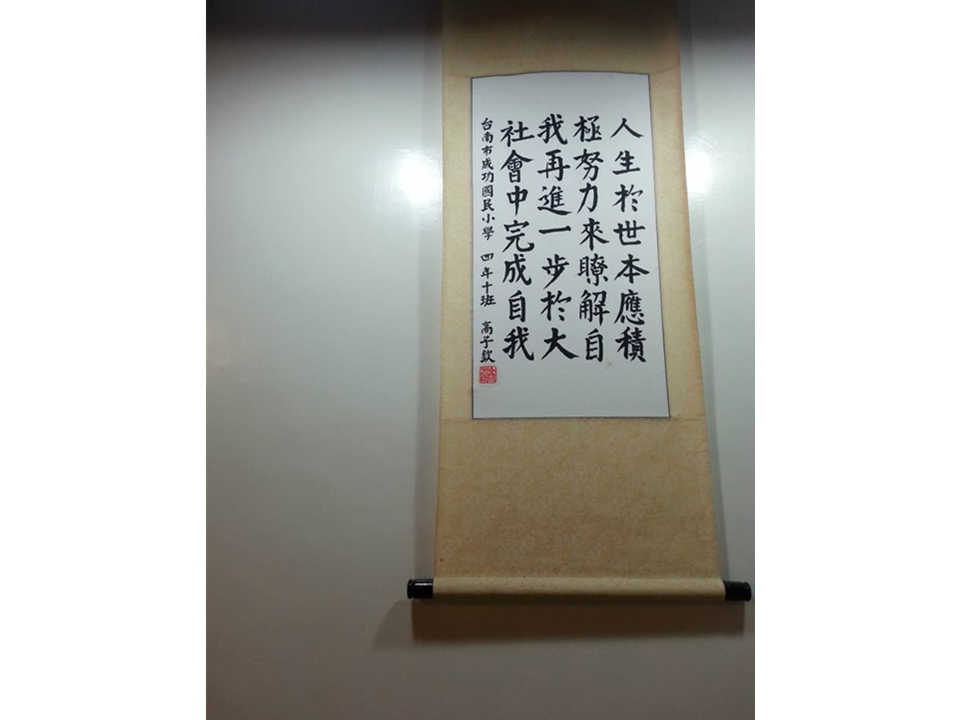 人生於世本應積
極努力來瞭解自
我再進一步於大
社會中完成自我
台南市成功國民小學 四年十班 高子欽